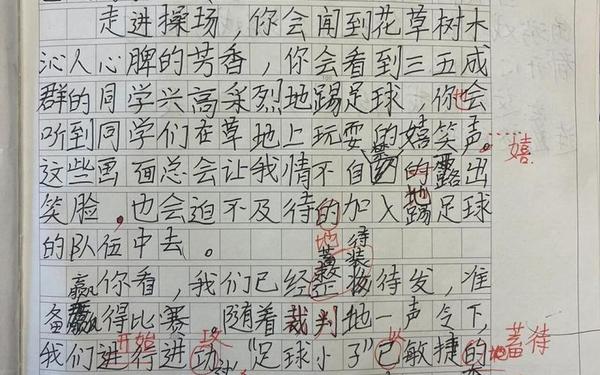 走进操场，你会闻到花草树木
沁人心脾的芳香，你会看到三五成
群的同学兴高采烈地踢足球，你也会
听到同学们在草地上玩耍的嬉笑声。……嬉
这些画面总会让我情不自的露出
笑脸，也会迫不及待的加入踢足球
地
的队伍中去。
地 蓄 待装
赢你看，我们已经整装待发，准
备赢得比赛。随着裁判地一声令下，
开始 攻 以 蓄待
我们进行进动。"足球小子"已敏捷的
地